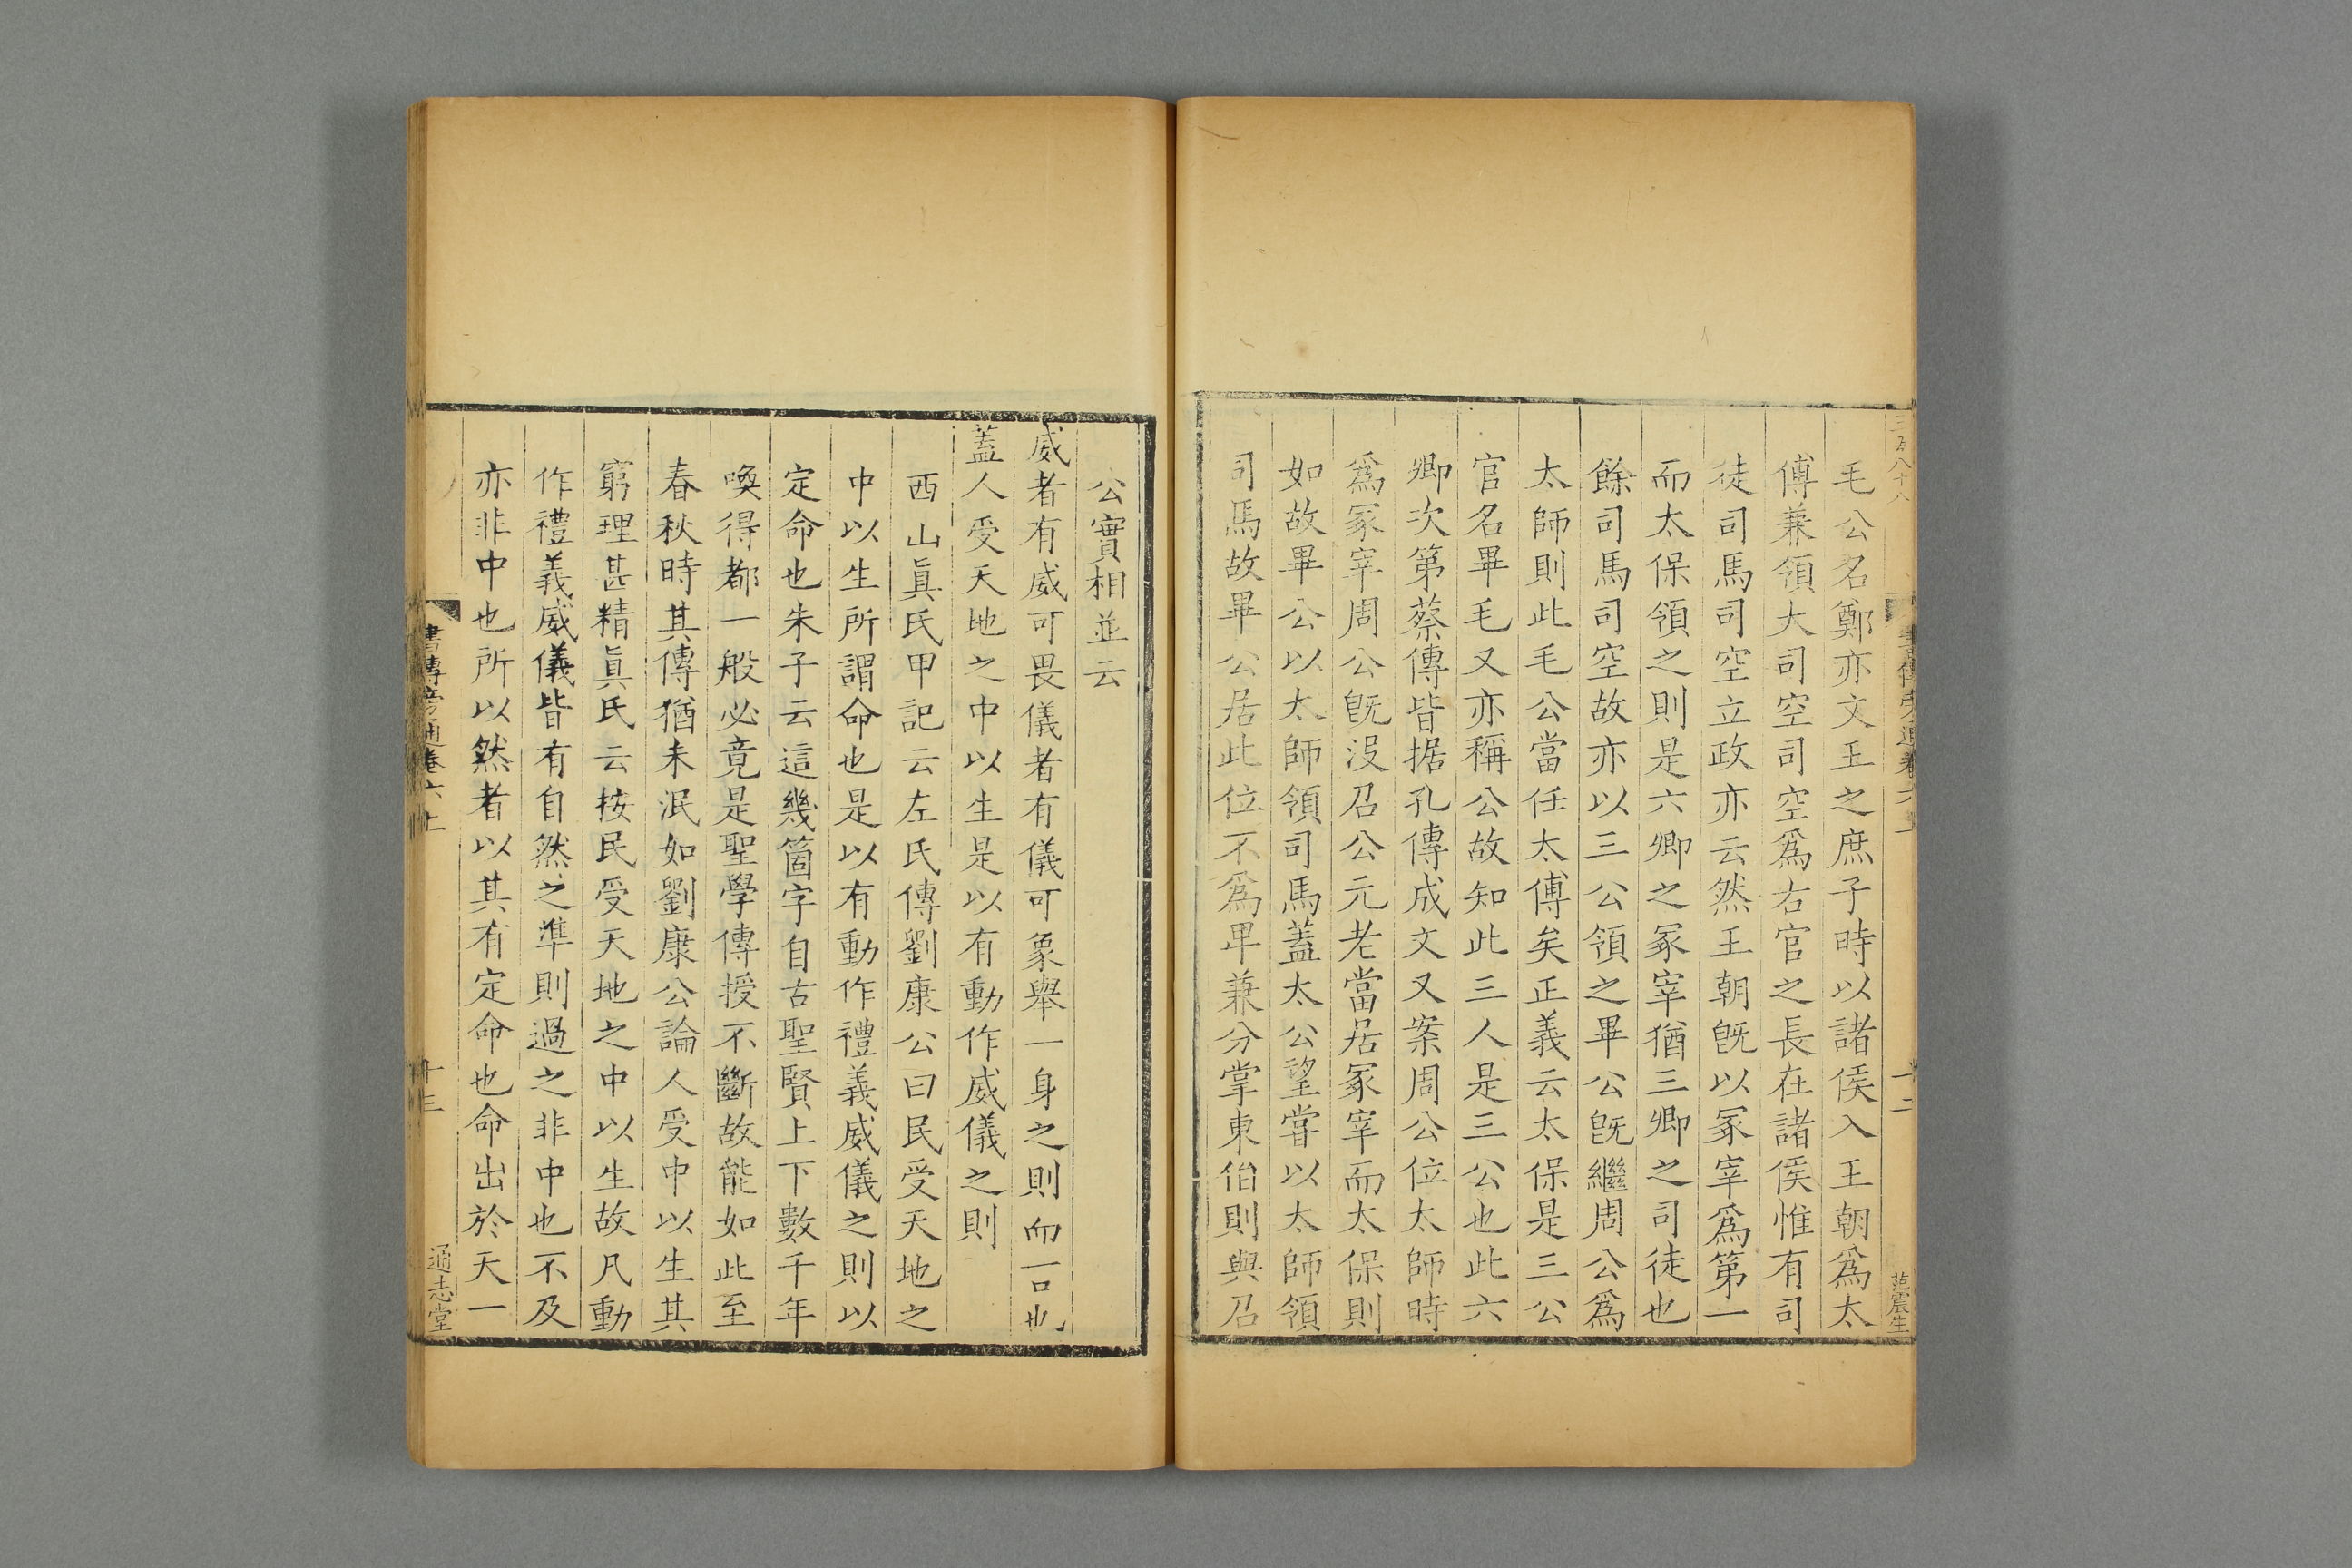 毛公名鄭亦文王之庶子時以諸侯入王朝爲太
傅兼領大司空司空爲右官之長在諸侯惟有司
徒司馬司空立政亦云然王朝旣以冢宰爲第一
而太保領之則是六卿之冢宰猶三卿之司徒也
餘司馬司空故亦以三公領之畢公旣繼周公爲
太師則此毛公當任太傅矣正義云太保是三公
官名畢毛又亦稱公故知此三人是三公也此六
卿次第蔡傳皆據孔傳成文又案周公位太師時
爲冢宰周公旣沒召公元老當居冢宰而太保則
如故畢公以太師領司馬蓋太公望嘗以太師領
司馬故畢公居此位不爲卑兼分掌東伯則與召
范宸生
公實相並云
威者有威可畏儀者有儀可象舉一身之則而言也
蓋人受天地之中以生是以有動作威儀之則
西山眞氏甲記云左氏傳劉康公曰民受天地之
中以生所謂命也是以有動作禮義威儀之則以
定命也朱子云這幾箇字自古聖賢上下數千年
喚得都一般必竟是聖學傳授不斷故能如此至
春秋時其傳猶未泯如劉康公論人受中以生其
窮理甚精眞氏云按民受天地之中以生故凡動
作禮義威儀皆有自然之準則過之非中也不及
亦非中也所以然者以其有定命也命出於天一
書傳旁通卷六上
十三
通志堂